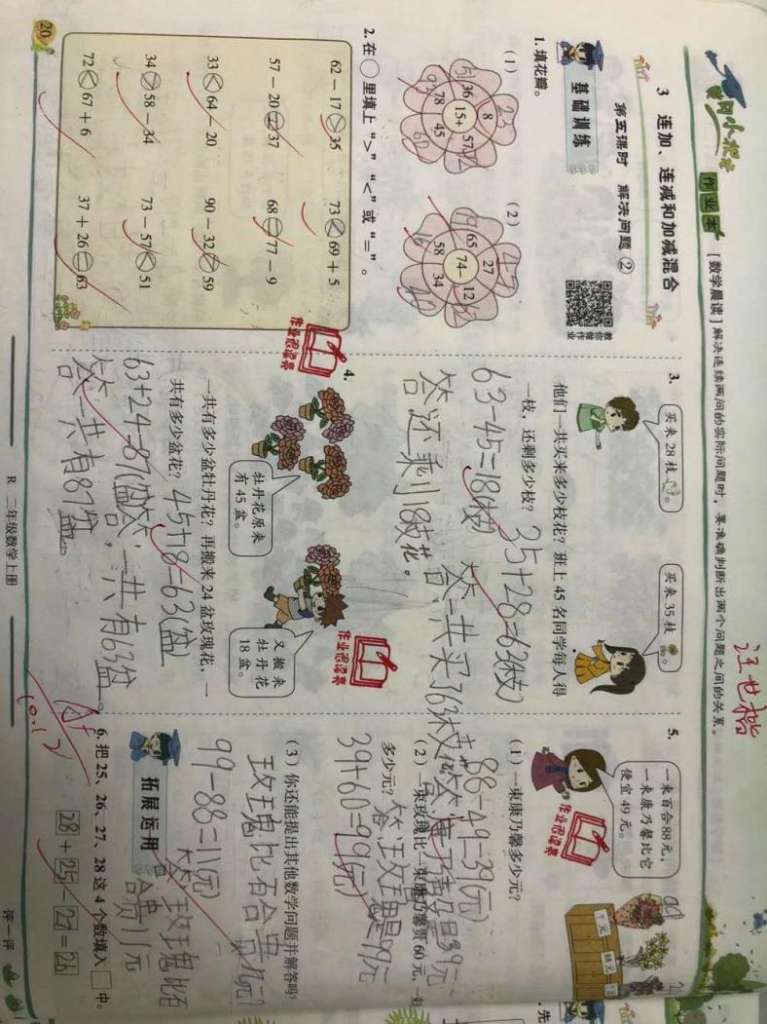 作业本
[数学晨读] 解决连续两问的实际问题时，要准确判断出两个问题之间的关系。
汪世楷
3 连加、连减和加减混合
第五课时 解决问题②
基础训练
1. 填花瓣。
(1)
15+
8
57
45
78
36
23
60
93
51
(2)
74-
27
12
34
58
65
47
40
16
2. 在○里填上“>”“<”或“=”。
62－17 35
73 69＋5
57－20 37
68 77－9
33 64－20
90－32 59
34 58－34
73－57 51
72 67＋6
37＋26 63
20
3.
买来 28 枝
买来 35 枝
他们一共买来多少枝花？班上 45 名同学每人得
一枝，还剩多少枝？
35+28=63(枝)
63-45=18(枝)
答:一共买了63枝花
答还剩18枝花。
作业很漂亮
4.
牡丹花原来
有 45 盆。
又搬来
牡丹花
18 盆。
作业很漂亮
一共有多少盆牡丹花？再搬来 24 盆玫瑰花，一
共有多少盆花？
45+18=63(盆)
63+24=87(盆)
答,一共有63盆。
答一共有87盆。
5.
一束百合88元，
一束康乃馨比它
便宜 49 元。
作业很漂亮
(1) 一束康乃馨多少元？
88-49=39(元)
(2) 一束玫瑰比一束康乃馨贵 60 元，
多少元？
39+60=99(元)
(3) 你还能提出其他数学问题并解答吗？
玫瑰比百合贵几元?
99-88=11(元)
答玫瑰比百合贵11元
拓展运用
6. 把 25、26、27、28 这 4 个数填入□中。
28 + 25 － 27 = 26
10.12
R 二年级数学上册
评一评